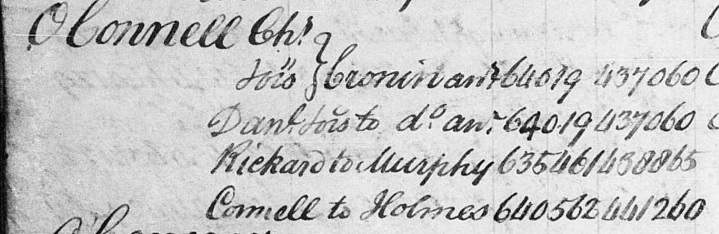 O'Connell Chr.
Tors } Cronin anr 64019 437060
Danl. Tors to do. anr. 64019 437060
Rickard to Murphy 635461 438865
Connell to Holmes 640562 441260